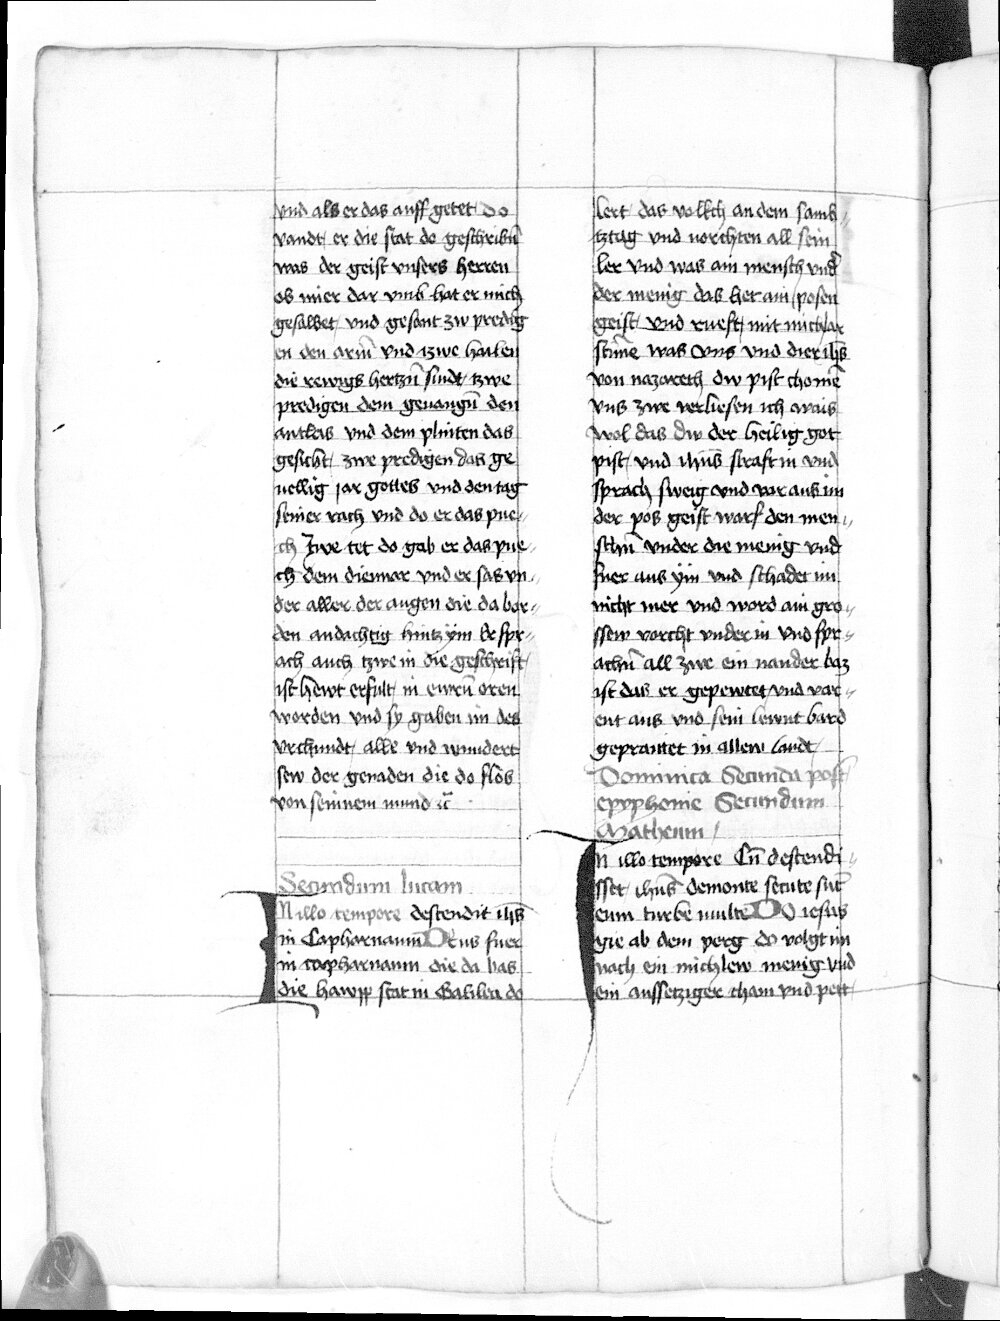 vnd als er das auff getet Do
vandt er die stat do geschribn̄
was der geist vnsers herren
ob mier dar vmb hat er mich
gesalbet vnd gesant zw predig
en den arm̄ vnd tzwe hailen
die rewigs hertzn̄ sindt tzwe
predigen dem geuangn̄ den
antlas vnd dem plinten das
gesicht zwe predigen das ge
nellig jar gottes vnd den tag
seiner rach vnd do er das pue-
ch Zwe tet do gab er das pue-
ch dem diennar vnd er sas vn-
der aller der augen die da bar-
den andachtig hintz ÿm Er spr-
ach auch tzwe in die geschrift
ist hewt erfult in ewrn̄ oren
worden vnd sy gaben im des
vrchundt alle vnd wundert
sew der genaden die do flos
von seinem mund ꝛc̄
Secundum lucam
IN illo tempore descendit ihs̄
in Capharnaum DEus fuer
in capharnaum die da bas
die hawpp stat in Galilea do
lert das volkch an dem samb-
tztag vnd vorchten all sein
ler vnd was ain mensch vnd̄
der menig das het ain posen
geist vnd rueft mit michlar
stim̄e was vns vnd dier ihs̄
von nazareth dw pist chomē
vns zwe verliesen ich wais
wol das dw der heilig got
pist vnd ihūs straft in vnd
sprach sweig vnd var aus im
der pos geist warf den men-
schn̄ vnder die menig vnd
fuer aus ÿm vnd schadet im
nicht mer vnd ward ain gro-
ssew vorcht vnder in vnd spr-
achn̄ all zwe ein nander baz
ist das er gepewtet vnd var-
ent aus vnd sein lewnt bard
gepraittet in allew landt
Dominica Secunda post
epyphenie Secundum
Matheum
IN illo tempore Cu̅ descendi-
sset ihūs de monte secute su̅t
eum turbe multe DO iesus
gie ab dem perg do volgt im
nach ein michlew menig vnd
ein aussetziger cham vnd pett